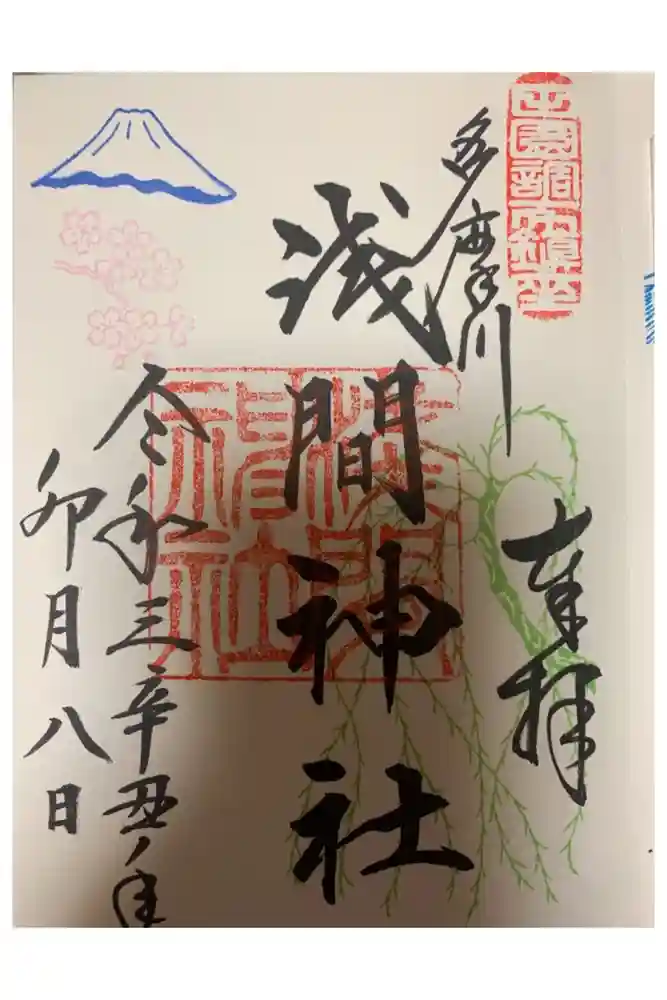 田園調布鎮座
奉拝
多摩川
浅間神社
浅間神社
令和三辛丑年
卯月八日